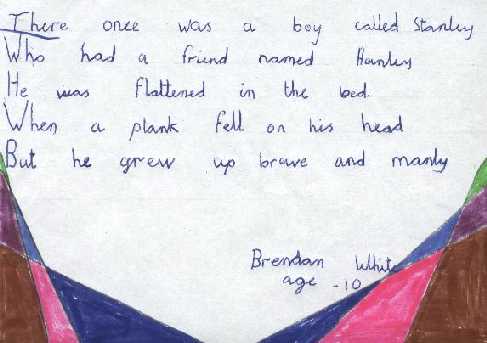 There once was a boy called Stanley
Who had a friend named Hanley
He was flattened in the bed
When a plank fell on his head
But he grew up brave and manly
Brendan White
age -10